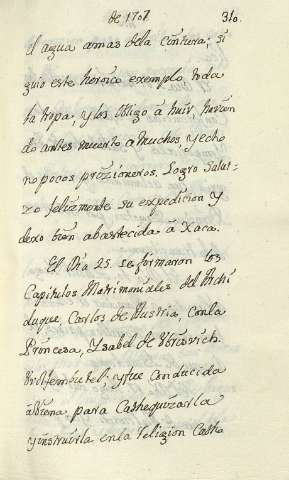 de 1707. 310.
el agua amas dela cintura; si
guio este heroico exemplo toda
la tropa, y los obligo à huir, havien
do antes muerto a muchos, y echo
no pocos prizioneros. Logro Salut=
zo felizmente su expedicion y
dexo bien abastecida à Xaca.
El Dia 25. se formaron los
Capitulos Matrimoniales del Archi
duque Carlos de Austria, con la
Princesa, Ysabel de Brunsvich.
Wolfembutel; y fue conducida
à Viena, para Catheguizarla
y instruirla en la religion Catho